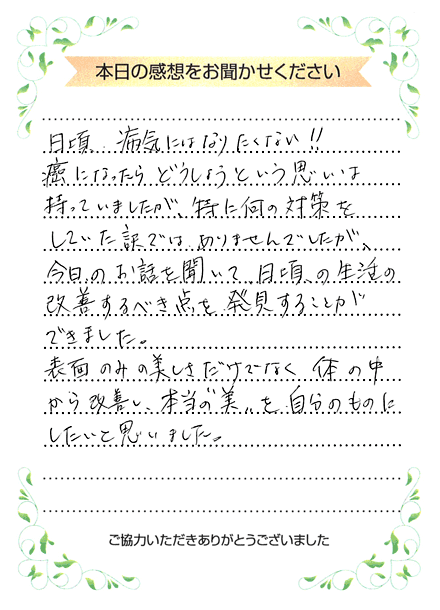 本日の感想をお聞かせください
日頃、病気にはなりたくない!!
癌になったらどうしようという思いは
持っていましたが、特に何の対策を
していた訳ではありませんでしたが、
今日のお話を聞いて、日頃の生活の
改善するべき点を発見することが
できました。
表面のみの美しさだけでなく 体の中
から改善し、本当の"美"を自分のものに
したいと思いました。
ご協力いただきありがとうございました